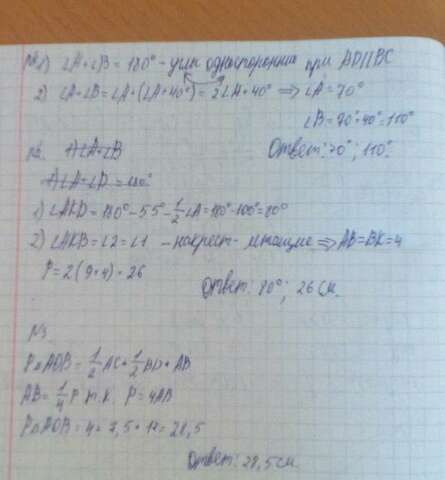 №1) ∠A+∠B = 180° - углы односторонние при AD||BC
2) ∠A+∠B = ∠A+(∠A+40°) = 2∠A+40° ⟹ ∠A = 70°
∠B = 70°+40° = 110°
Ответ: 70°; 110°.
№2. 1) ∠A+∠B
1) ∠A+∠D = 180°
1) ∠AKD = 180° - 55 - 1/2∠A = 180° - 100° = 80°
2) ∠AKB = ∠2 = ∠1 - накрест-лежащие ⟹ AB = BK = 4
P = 2(9+4) = 26
Ответ: 80°; 26 см.
№3
P△AOB = 1/2 AC + 1/2 BD + AB
AB = 1/4 P т.к. P = 4AB
P△AOB = 4+7,5+17 = 28,5
Ответ: 28,5 см